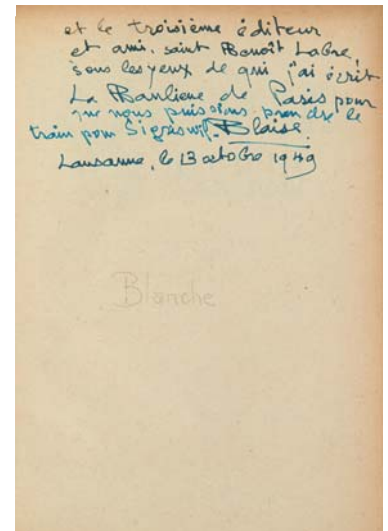 et le troisième éditeur
et ami, saint Benoît Labre,
sous les yeux de qui j'ai écrit
La Banlieue de Paris pour
que nous puissions prendre le
train pour Sigriswil. Blaise.
Lausanne, le 13 octobre 1949
Blanche